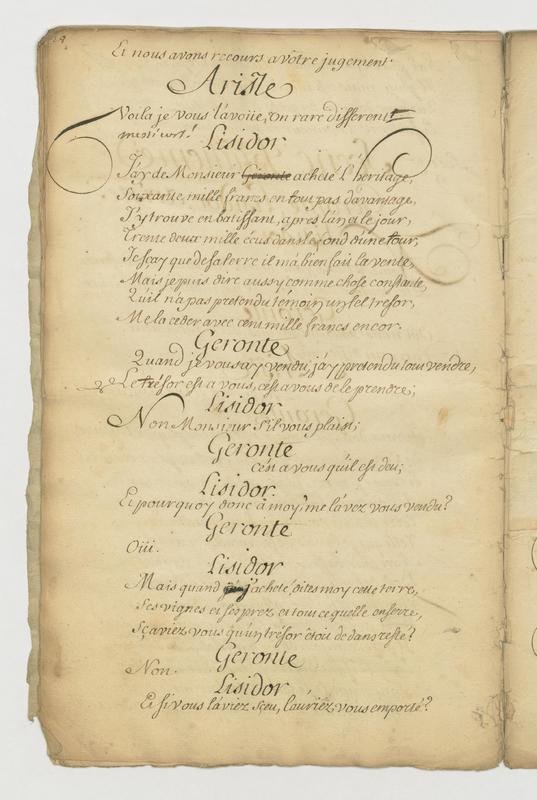 Et nous avons recours a vôtre jugement.
Ariste
Voila je vous l'avoüe, un rare different
Lisidor
J'ay de Monsieur Geronte acheté l'heritage,
Soixante mille francs en tout pas davantage,
J'y trouve en batissant, apres l'an et le jour,
Trente deux mille écus dans le fond d'une tour,
Je sçay que de sa terre il m'a bien fait la vente,
Mais je puis dire aussy comme chose constante,
Qu'il n'a pas pretendu témoin un tel trésor,
Me la ceder avec cent mille francs encor.
Geronte
Quand je vous ay vendu, j'ay pretendu tout vendre,
Le trésor est a vous, c'est a vous de le prendre;
Lisidor
Non Monsieur s'il vous plaist;
Geronte
c'est a vous qu'il est deu;
Lisidor.
Et pourquoy donc à moy, me l'avez vous vendu?
Geronte
Oüi.
Lisidor
Mais quand j'acheté, dites moy cette terre,
Ses vignes et ses prez et tout ce quelle enserre,
Sçaviez vous qu'un trésor êtoit de dans reste?
Geronte
Non.
Lisidor
Et si vous l'aviez sçeu, l'auriez vous emporté?